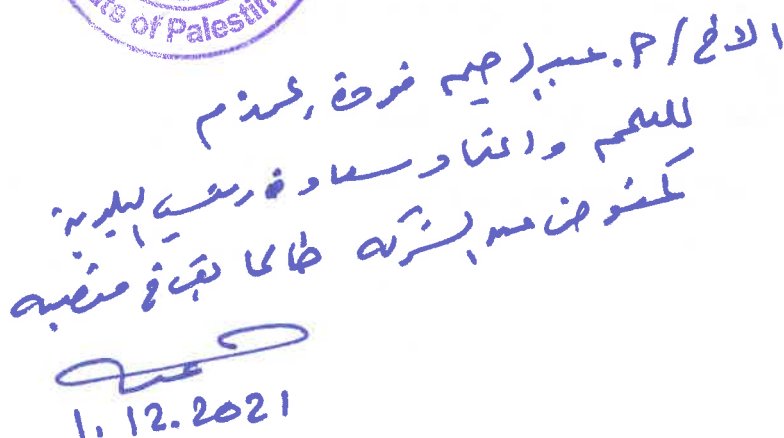 of Palestin
الاخ / م. عبد الرحيم فروة المحترم
للعلم واعتماد سعادة رئيس البلدية
كمفوض عن الشركة طالما بقي في منصبه
1.12.2021